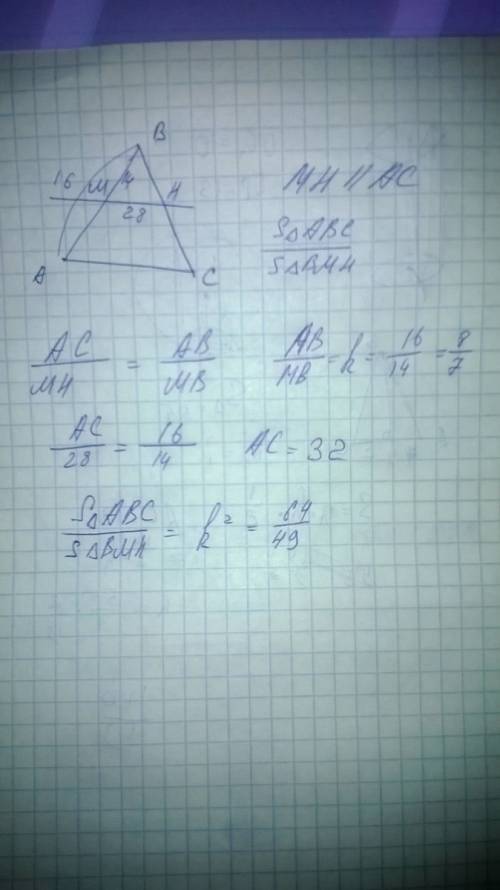 B
16 M 14 H
28
A
C
MH || AC
S△ABC / S△BMH
AC / MH = AB / MB
AB / MB = k = 16 / 14 = 8 / 7
AC / 28 = 16 / 14
AC = 32
S△ABC / S△BMH = k² = 64 / 49